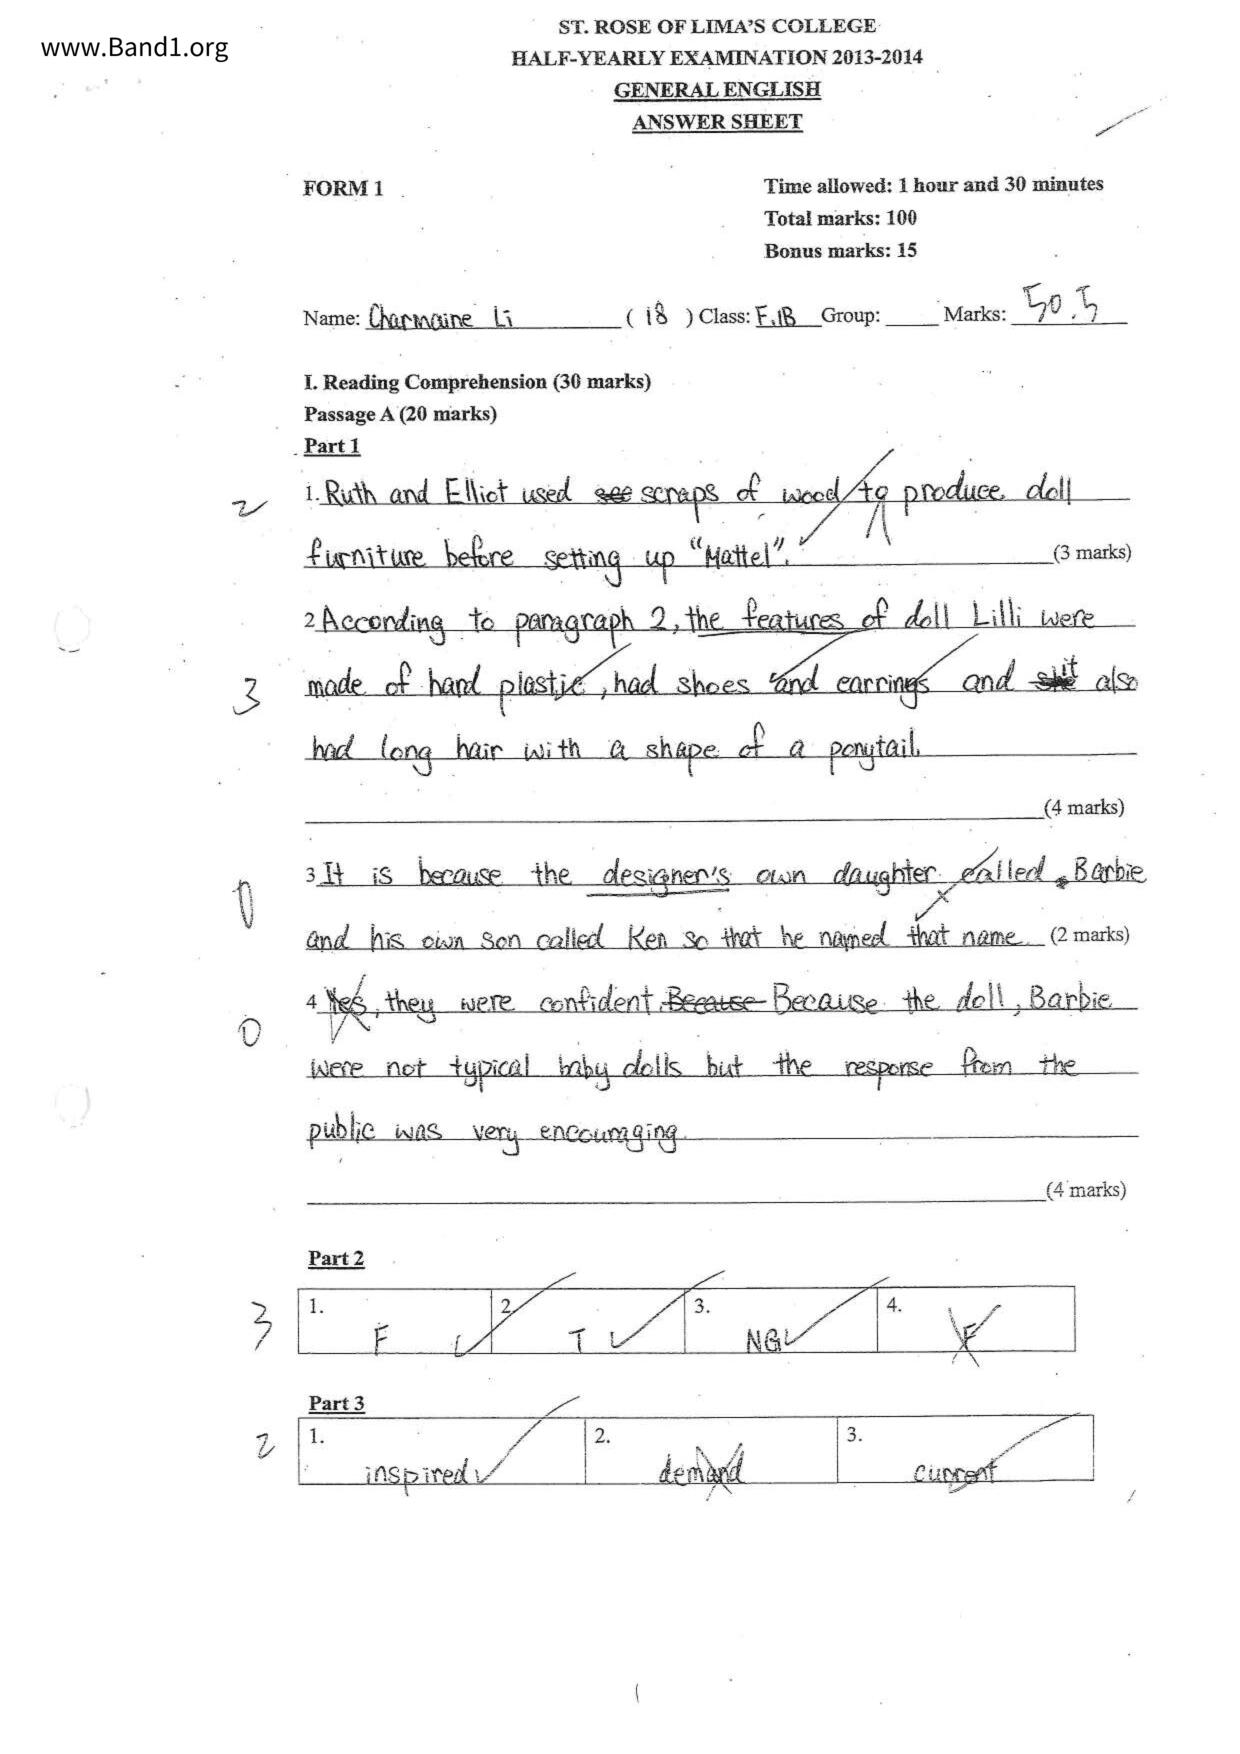 www.Band1.org
ST. ROSE OF LIMA'S COLLEGE
HALF-YEARLY EXAMINATION 2013-2014
GENERAL ENGLISH
ANSWER SHEET
FORM 1
Time allowed: 1 hour and 30 minutes
Total marks: 100
Bonus marks: 15
Name: Charmaine Li (18) Class: F.1B Group: ____ Marks: 50.5
I. Reading Comprehension (30 marks)
Passage A (20 marks)
Part 1
2 1. Ruth and Elliot used see scraps of wood to produce doll
furniture before setting up "Mattel". (3 marks)
2 According to paragraph 2, the features of doll Lilli were
3 made of hard plastic, had shoes and earrings and it also
had long hair with a shape of a ponytail.
(4 marks)
3 It is because the designer's own daughter called Barbie
0 and his own son called Ken so that he named that name (2 marks)
4 Yes, they were confident. Because Because the doll, Barbie
0 were not typical baby dolls but the response from the
public was very encouraging
(4 marks)
Part 2
3 1. F 2. T 3. NG 4. F
Part 3
2 1. inspired 2. demand 3. current